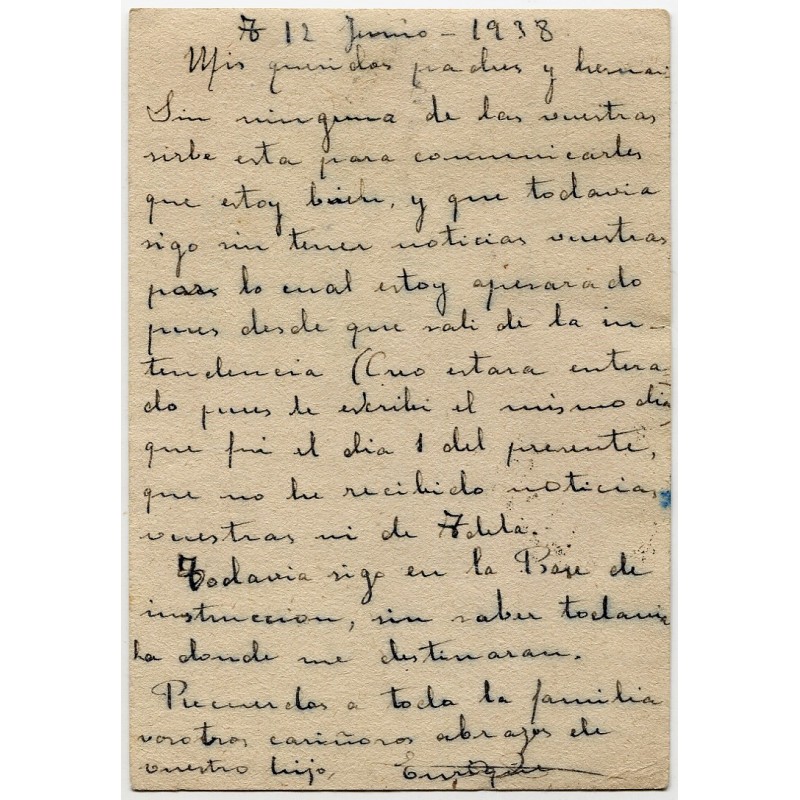 A 12 Junio - 1938
Mis queridos padres y herma
Sin ninguna de las vuestras
sirbe esta para comunicarles
que estoy bien, y que todavia
sigo sin tener noticias vuestras
por lo cual estoy apesarado
pues desde que sali de la in-
tendencia (Creo estara entera
do pues le escribi el mismo dia
que fui el dia 1 del presente,
que no he recibido noticias
vuestras ni de Adela.
Todavia sigo en la Base de
instruccion, sin saber todavia
ha donde me destinaran.
Recuerdos a toda la familia
vosotros cariñosos abrazos de
vuestro hijo, Enrique